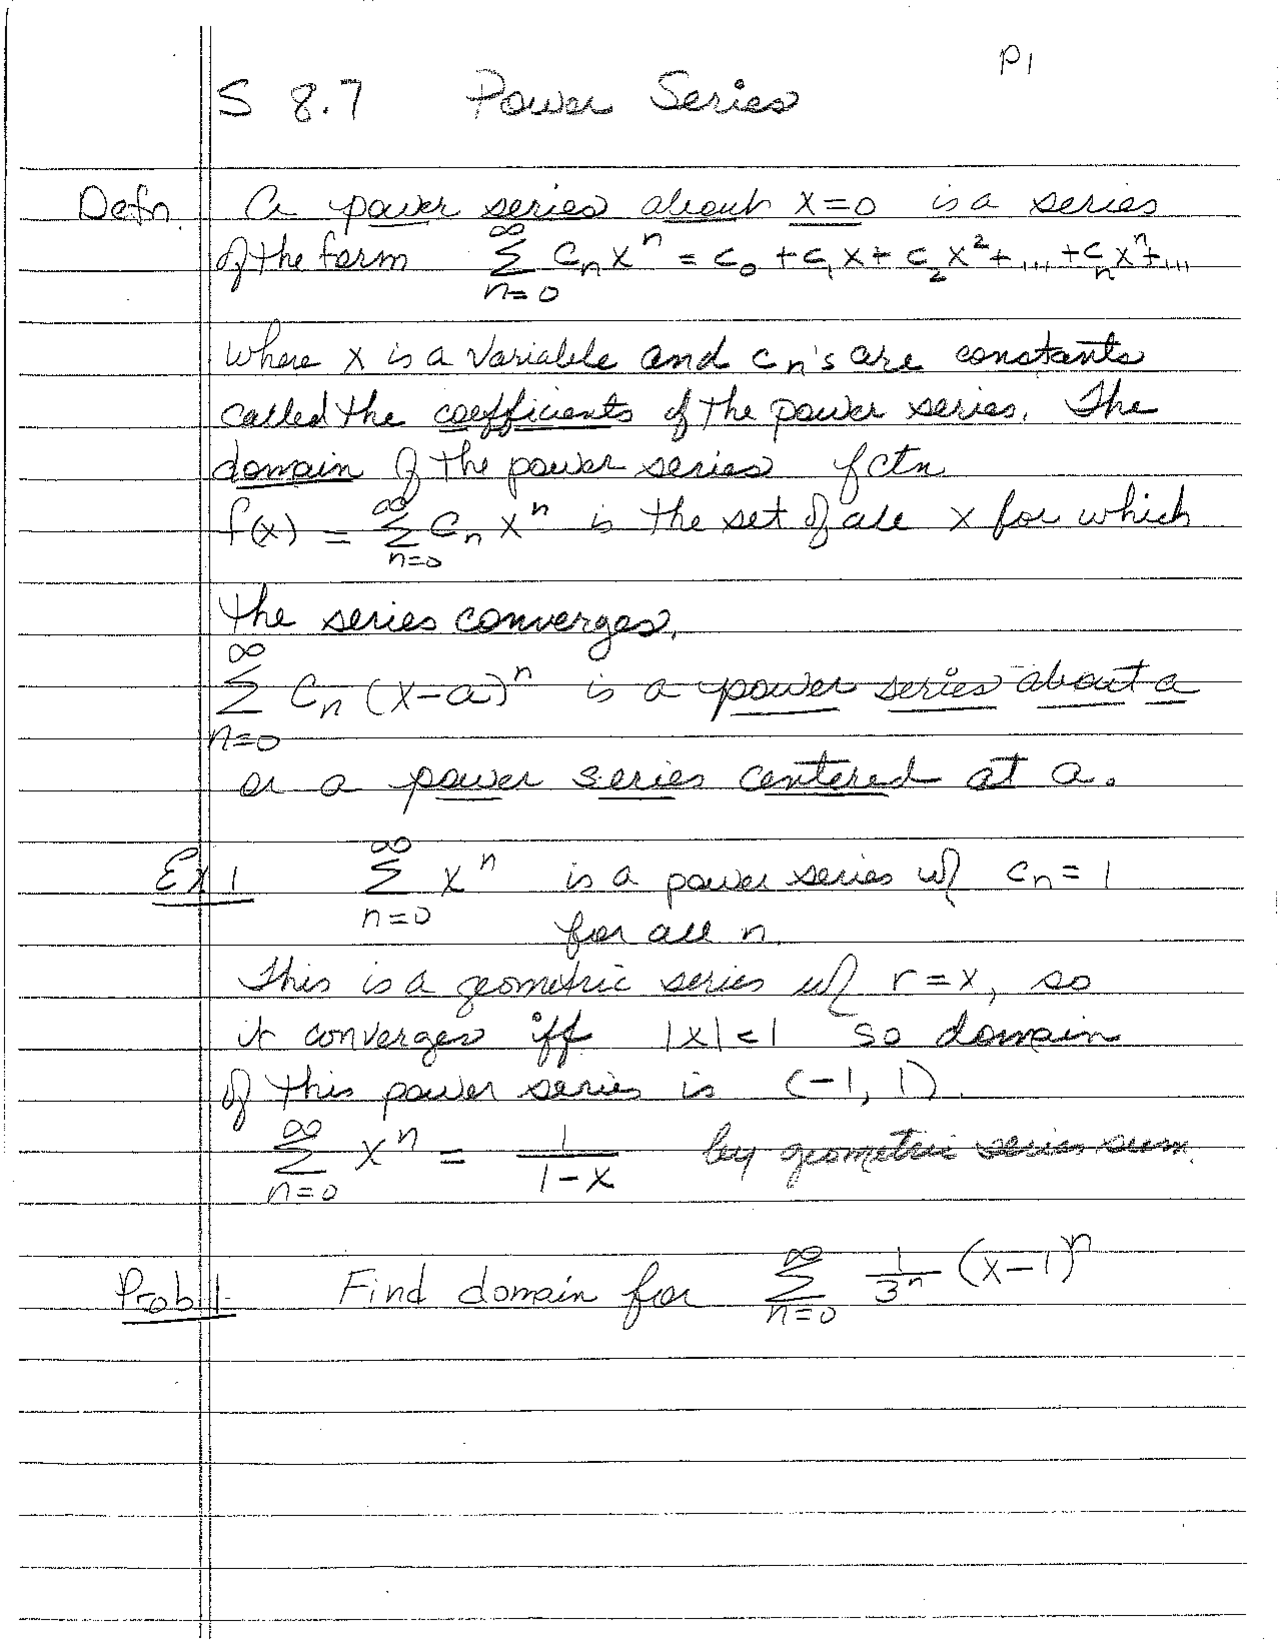 P1
S 8.7 Power Series
Defn. A power series about x=0 is a series
of the form ∞∑n=0 cₙxⁿ = c₀ + c₁x + c₂x² + ... + cₙxⁿ + ...
where x is a variable and cₙ's are constants
called the coefficients of the power series. The
domain of the power series fctn
f(x) = ∞∑n=0 cₙxⁿ is the set of all x for which
the series converges.
∞∑n=0 cₙ(x-a)ⁿ is a power series about a
or a power series centered at a.
Ex 1 ∞∑n=0 xⁿ is a power series w/ cₙ = 1
for all n.
This is a geometric series w/ r=x, so
it converges iff |x|<1 so domain
of this power series is (-1, 1).
∞∑n=0 xⁿ = 1/(1-x) by geometric series sum.
Prob 1. Find domain for ∞∑n=0 1/3ⁿ (x-1)ⁿ